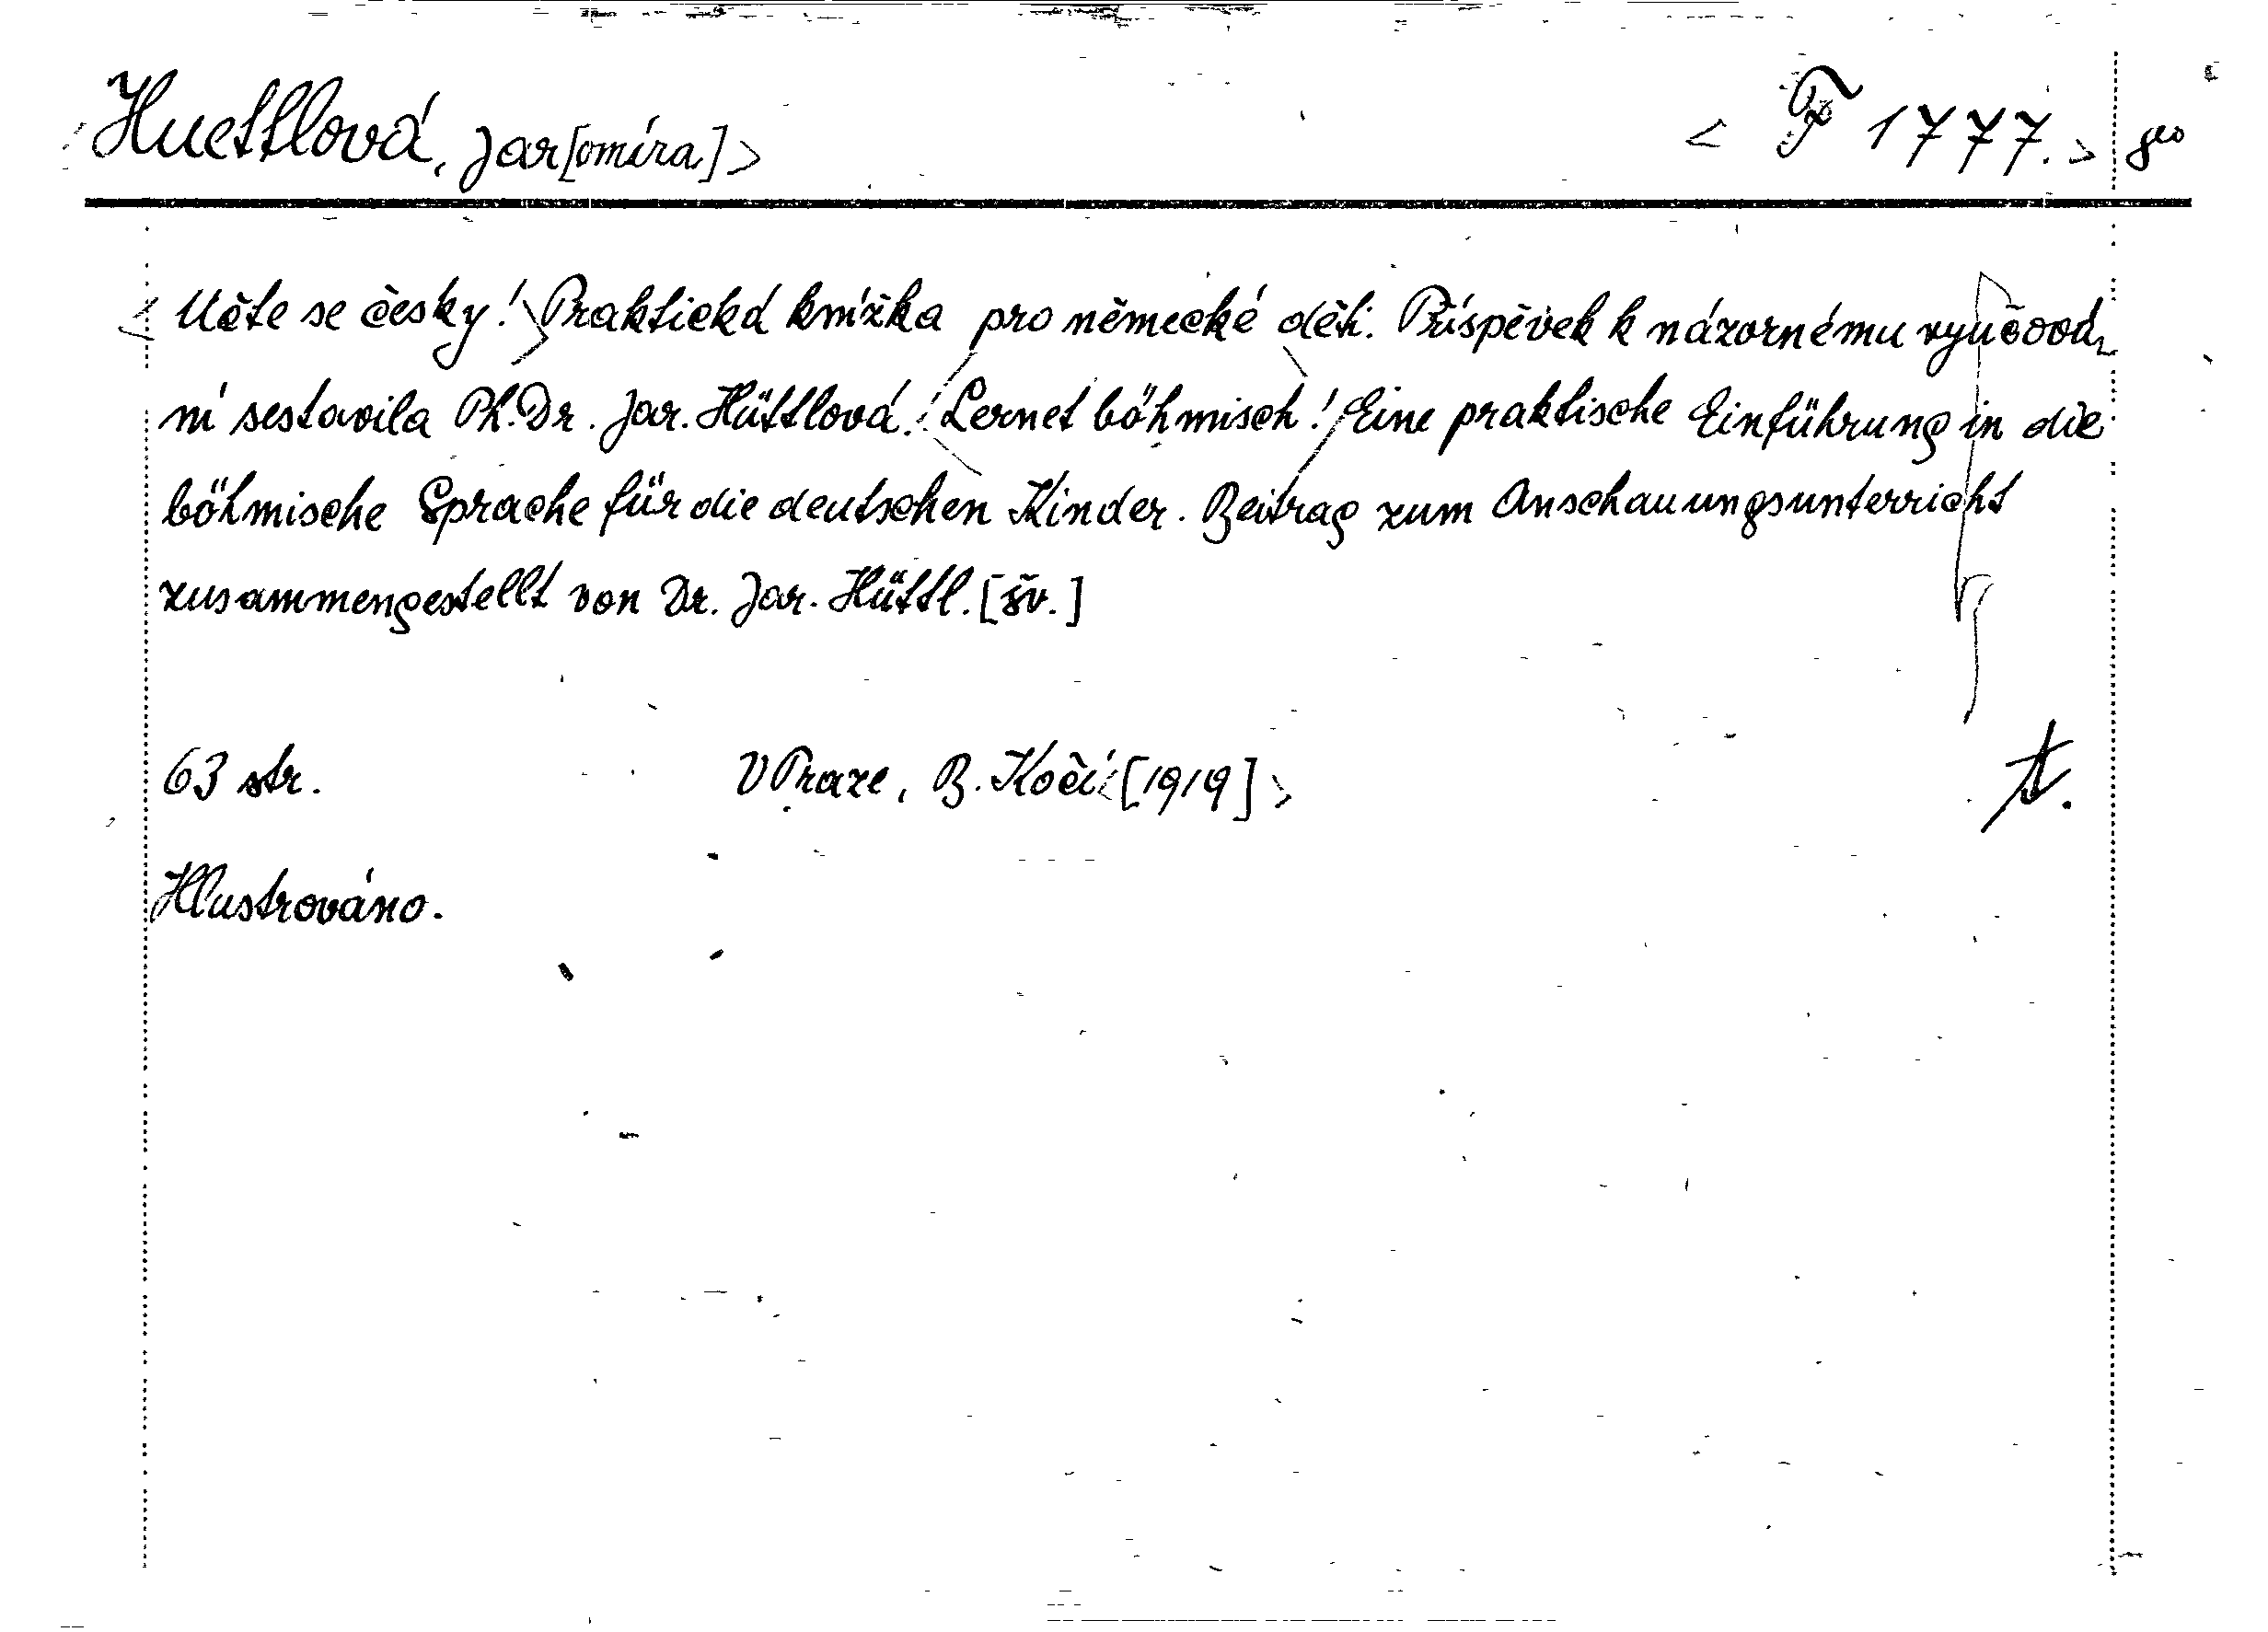 Huettlová, Jar[omíra]> < F 1777. > 8°
< Učte se česky! > Praktická knížka pro německé děti. Příspěvek k názornému vyučová-
ní sestavila Ph. Dr. Jar. Hüttlová. < Lernet böhmisch! > Eine praktische Einführung in die
böhmische Sprache für die deutschen Kinder. Beitrag zum Anschauungsunterricht
zusammengestellt von Dr. Jar. Hüttl. [šv.]
63 str. V Praze, B. Kočí <[1919] > t.
Illustrováno.